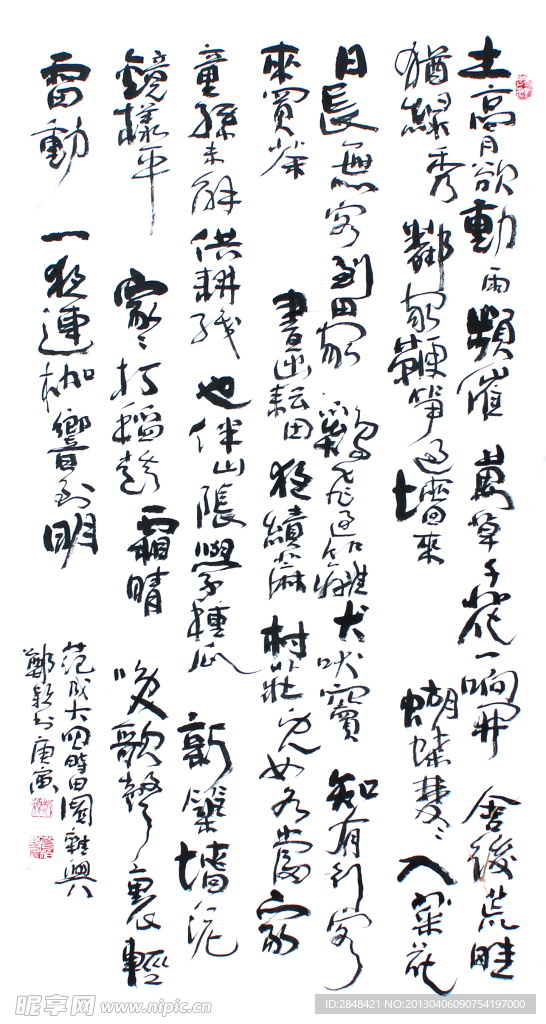 土膏欲動雨頻催 萬草千花一晌開 舍後荒畦
猶綠秀 鄰家鞭筍過墻來 蝴蝶雙〻入菜花
日長無客到田家 雞飛過籬犬吠竇 知有行客
來買茶 晝出耘田夜績麻 村莊兒女各當家
童孫未解供耕織 也伴山陰學種瓜 新築墻泥
鏡樣平 家〻打稻趁霜晴 歌聲裏輕
雷動 一夜連枷響到明
范成大四時田園雜興
鄭 書庚寅
昵享网 www.nipic.cn
ID:2848421 NO:20130406090754197000